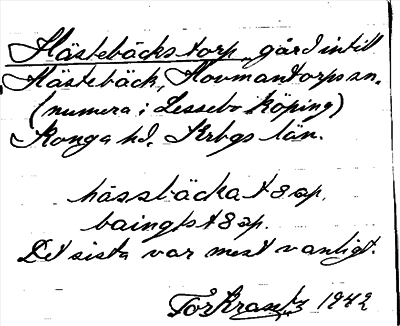 Hästebäckstorp, gård intill
Hästebäck, Hovmantorps sn.
(numera i Lessebo köping)
Konga hd. Krbgs län.
hässbäcka
Det sista var mest vanligt.
Tor Krantz 1942